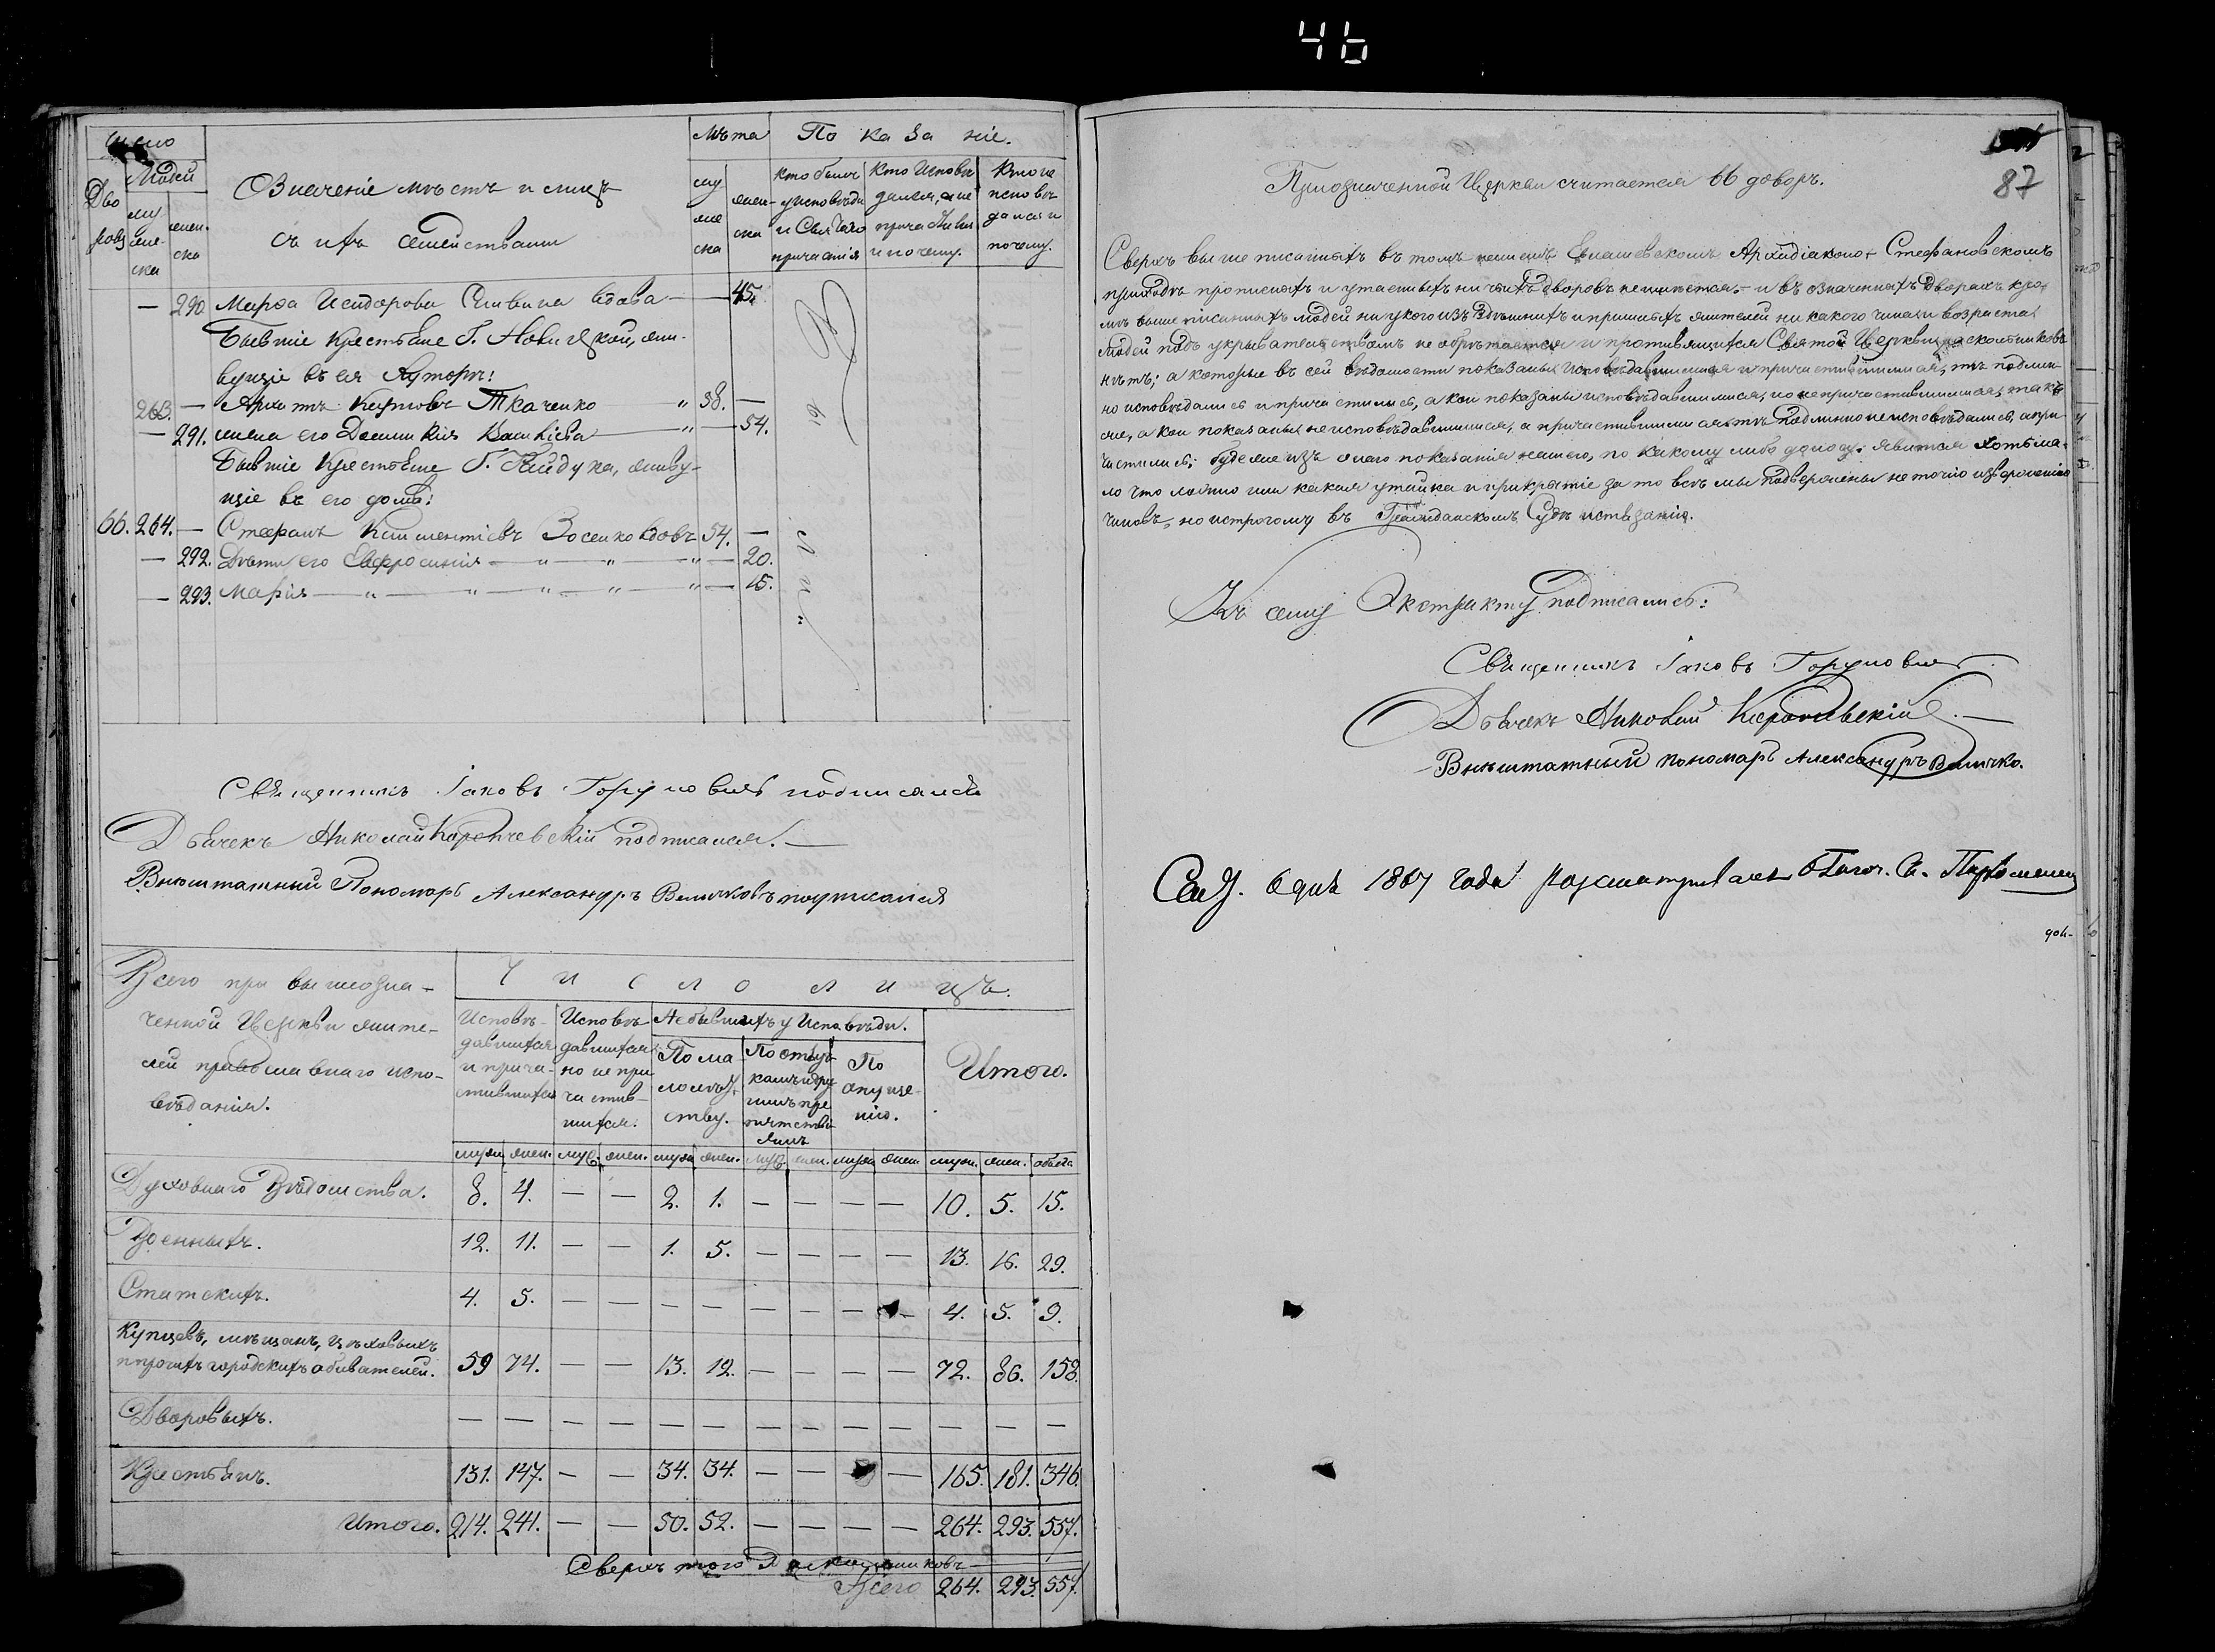 46
Число
Людей
Дво
ровъ
му
же-
ска
жен-
ска
Означеніе мѣстъ и лицъ
съ ихъ семействами
Лѣта
му
же
ска
жен-
ска
По ка за ніе.
кто былъ
у исповѣди
и Свят. Таго
причастія
Кто Исповѣ
дался, а не
причастился
и почему.
Кто не
исповѣ
дался и
почему.
— 290. Марѳа Исидорова вдова — 45.
Бывшіе Крестьяне Г. Новицкой, жи-
вущіе въ ея хуторѣ:
263. — Карповъ Ткаченко " 38. —
— 291. жена его Васильева " — 54.
Бывшіе Крестьяне Г. Гайдука, живу-
щіе въ его домѣ:
66. 264. — Стефанъ Климентіевъ Зосенко вдовъ 54. —
— 292. Дѣти его Евфросинія — " — " — " — 20.
— 293. Марія — " — " — " — " — " — 15.
Священникъ Іаковъ подписался
Дьячекъ Николай подписался. —
Внѣштатный Пономарь Александръ подписался
Всего при вышеозна-
ченной Церкви жите-
лей православнаго испо-
вѣданія.
Ч и с л о л и цъ.
Исповѣ-
давшихся
и прича-
стившихся
Исповѣ
давшихся
но не при
частив-
шихся.
Небывшихъ у Исповѣди.
По ма
лолѣт
ству.
По отлуч
камъ и дру
гимъ пре
пятстві
ямъ
По
опуще-
нію.
Итого.
муж. жен. муж. жен. муж. жен. муж. жен. муж. жен. муж. жен. обоего
Духовнаго Вѣдомства. 8. 4. — — 2. 1. — — — — 10. 5. 15.
Военныхъ. 12. 11. — — 1. 5. — — — — 13. 16. 29.
Статскихъ. 4. 5. — — — — — — — — 4. 5. 9.
Купцевъ, мѣщанъ, цѣховыхъ
и прочихъ городскихъ обывателей. 59 74. — — 13. 12. — — — — 72. 86. 158.
Дворовыхъ. — — — — — — — — — — — — —
Крестьянъ. 131. 147. — — 34. 34. — — — — 165. 181. 346.
Итого. 214. 241. — — 50. 52. — — — — 264. 293. 557.
Сверхъ того Раскольниковъ
Всего 264. 293. 557.
87
При означенной Церкви считается 66 дворъ.
Сверхъ выше писанныхъ въ томъ Архидіаконо-Стефановскомъ
приходѣ прописныхъ и утаенныхъ ни чьихъ дворовъ не имѣется, — и въ означенныхъ дворахъ кро-
мѣ выше писанныхъ людей ни у кого изъ здѣшнихъ и пришлыхъ жителей ни какого чина и возраста
людей подъ укрывательствомъ не обрѣтается и противящихся Святой Церкви раскольниковъ
нѣтъ; а которые въ сей вѣдомости показаны исповѣдавшимися и причастившимися, тѣ подлин-
но исповѣдались и причастились, а кои показаны исповѣдавшимися, но не причастившимися, такъ
же, а кои показаны не исповѣдавшимися, а причастившимися тѣ подлинно не исповѣдались, а при-
частились; буде же изъ онаго показанія нашего, по какому либо доводу, явится хотя ма-
ло что ложно или какая утайка и прикрытіе за то всѣ мы подвержены не точію изверженію
чиновъ, но и строгому въ Гражданскомъ Судѣ истязанію.
Къ сему Экстракту подписались:
Священникъ Іаковъ
Дьячекъ Николай
Внѣштатный пономарь Александръ Величко.
6 дня 1867 года разсматривалъ Благоч. Св.